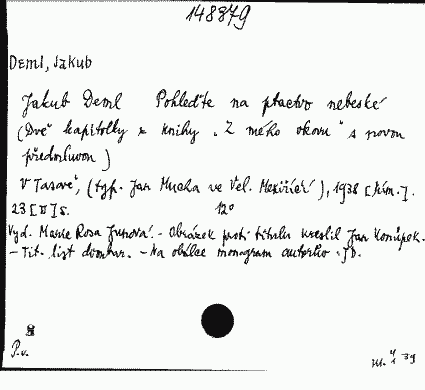 148879
Deml, Jakub
Jakub Deml Pohleďte na ptactvo nebeské
(Dvě kapitolky z knihy „Z mého okovu" s novou
předmluvou)
V Tasově, (typ. Jan Mucha ve Vel. Meziříčí), 1938 [
23 [II] s. 12°
Vyd. Marie Rosa Junová. – Obrázek proti titulu kreslil Jan Konůpek.
– Tit. list dvoubar. – Na obálce monogram autorův JD.
P.v.
39